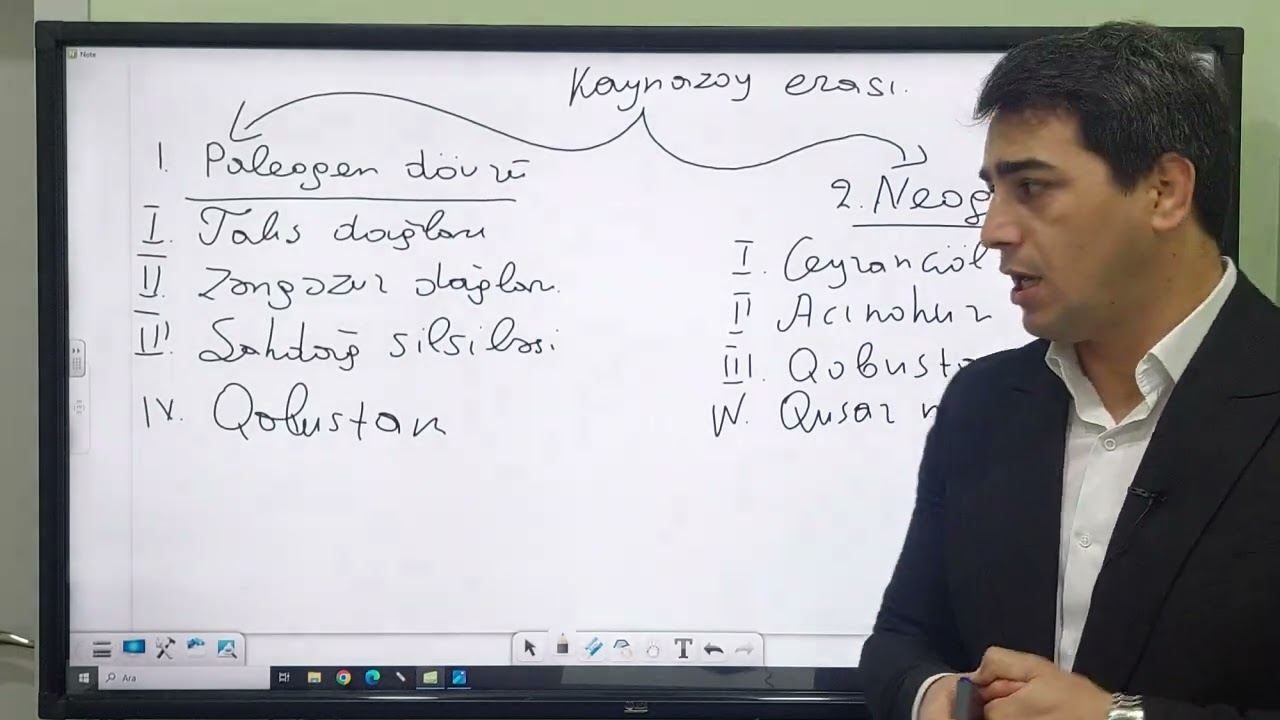 Note
Kaynazoy erası.
1. Paleogen dövrü
I. Talış dağları
II. Zəngəzur dağları.
III. Şahdağ silsiləsi.
IV. Qobustan
2. Neog
I. Ceyrançöl
II. Acınohur
III. Qobusta
IV. Qusar
T
Ara